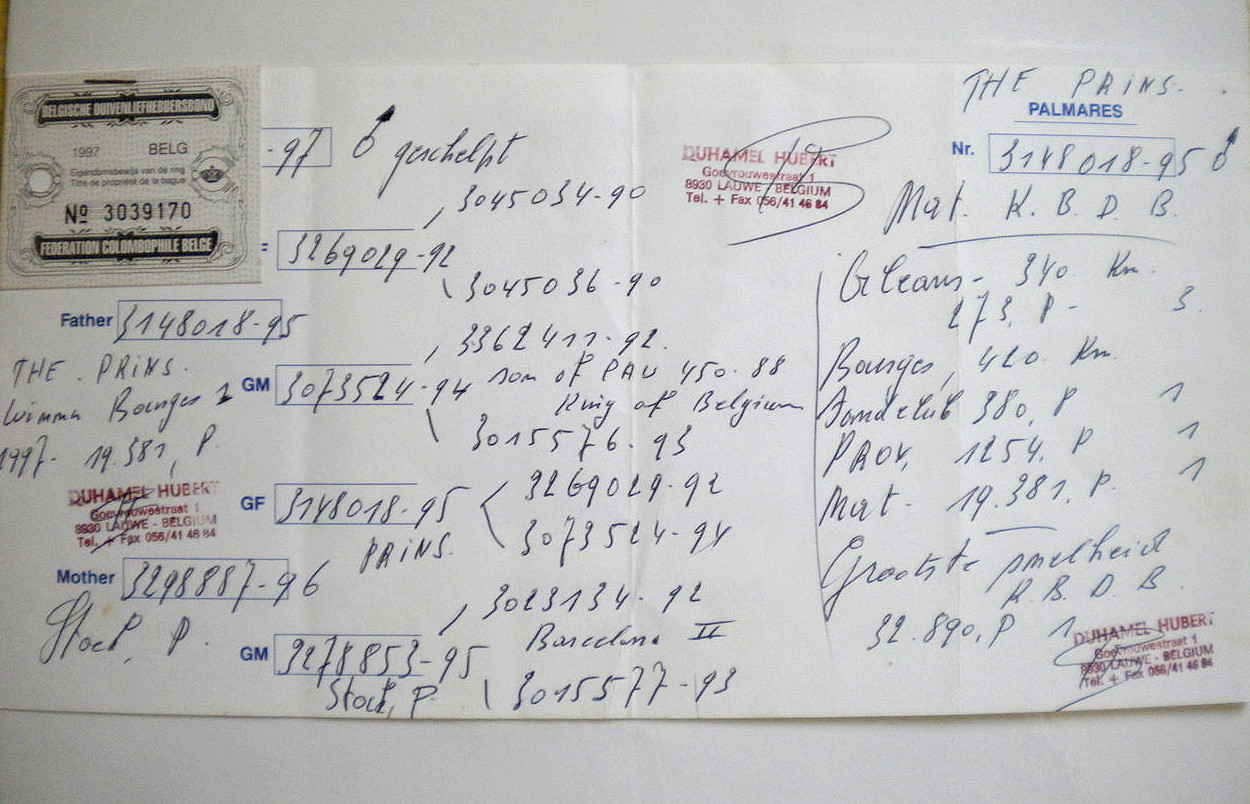 BELGISCHE DUIVENLIEFHEBBERSBOND
1997 BELG
Eigendomsbewijs van de ring
Titre de propriété de la bague
Nº 3039170
FEDERATION COLOMBOPHILE BELGE
-97 ♂ geschelpt
3269029-92
3045034-90
3045036-90
Father 3148018-95
THE PRINS.
Bourges
1997- 19.381, P.
GM 3073524-94
3362411-92.
son of PAU 450-88
King of Belgium
3015576-93
DUHAMEL HUBERT
Goevrouwestraat 1
8930 LAUWE - BELGIUM
Tel. + Fax 056/41 46 84
GF 3148018-95
PRINS.
3269029-92
3073524-94
Mother 3298887-96
Stock, P.
GM 3278853-95
Stock, P
3023134-92
Barcelona II
3015577-93
DUHAMEL HUBERT
Goevrouwestraat 1
8930 LAUWE - BELGIUM
Tel. + Fax 056/41 46 84
THE PRINS.
PALMARES
Nr. 3148018-95 ♂
Nat. K. B. D. B.
Orleans- 340. Km.
273, P- 3.
Bourges, 420. Km.
380, P 1
PROV, 1254. P 1
Nat. 19.381, P. 1
Grootste snelheid
K. B. D. B.
32.890, P 1
DUHAMEL HUBERT
Goevrouwestraat 1
8930 LAUWE - BELGIUM
Tel. + Fax 056/41 46 84